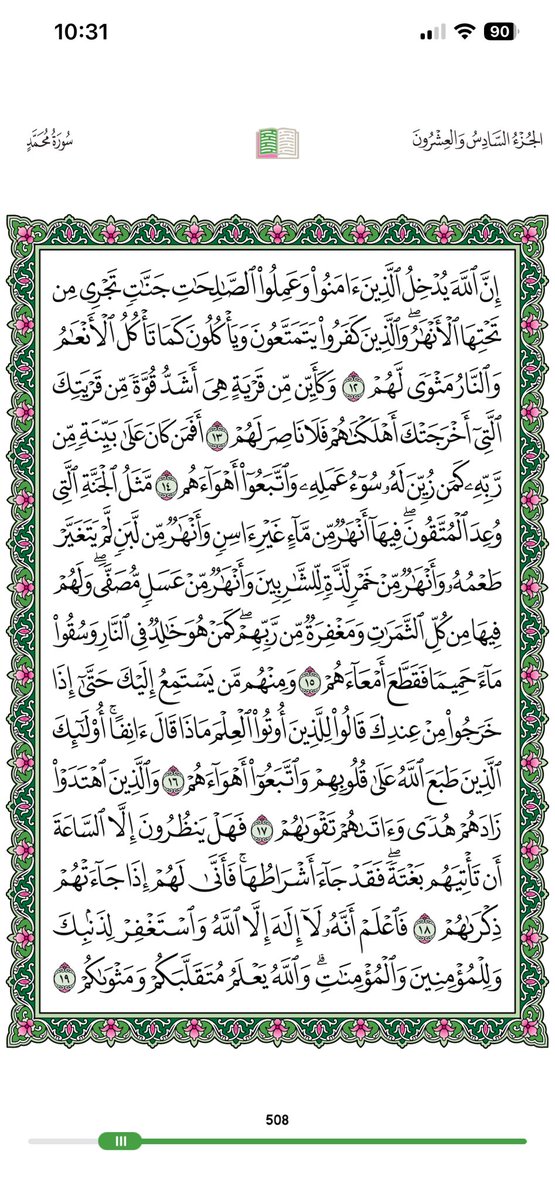 10:31
90
سُورَةُ مُحَمَّدٍ
الجُزْءُ السَّادِسُ وَالعِشْرُونَ
إِنَّ ٱللَّهَ يُدْخِلُ ٱلَّذِينَ ءَامَنُوا۟ وَعَمِلُوا۟ ٱلصَّـٰلِحَـٰتِ جَنَّـٰتٍ تَجْرِى مِن
تَحْتِهَا ٱلْأَنْهَـٰرُ ۖ وَٱلَّذِينَ كَفَرُوا۟ يَتَمَتَّعُونَ وَيَأْكُلُونَ كَمَا تَأْكُلُ ٱلْأَنْعَـٰمُ
وَٱلنَّارُ مَثْوًى لَّهُمْ ١٢ وَكَأَيِّن مِّن قَرْيَةٍ هِىَ أَشَدُّ قُوَّةً مِّن قَرْيَتِكَ
ٱلَّتِىٓ أَخْرَجَتْكَ أَهْلَكْنَـٰهُمْ فَلَا نَاصِرَ لَهُمْ ١٣ أَفَمَن كَانَ عَلَىٰ بَيِّنَةٍ مِّن
رَّبِّهِۦ كَمَن زُيِّنَ لَهُۥ سُوٓءُ عَمَلِهِۦ وَٱتَّبَعُوٓا۟ أَهْوَآءَهُم ١٤ مَّثَلُ ٱلْجَنَّةِ ٱلَّتِى
وُعِدَ ٱلْمُتَّقُونَ ۖ فِيهَآ أَنْهَـٰرٌ مِّن مَّآءٍ غَيْرِ ءَاسِنٍ وَأَنْهَـٰرٌ مِّن لَّبَنٍ لَّمْ يَتَغَيَّرْ
طَعْمُهُۥ وَأَنْهَـٰرٌ مِّنْ خَمْرٍ لَّذَّةٍ لِّلشَّـٰرِبِينَ وَأَنْهَـٰرٌ مِّنْ عَسَلٍ مُّصَفًّى ۖ وَلَهُمْ
فِيهَا مِن كُلِّ ٱلثَّمَرَٰتِ وَمَغْفِرَةٌ مِّن رَّبِّهِمْ ۖ كَمَنْ هُوَ خَـٰلِدٌ فِى ٱلنَّارِ وَسُقُوا۟
مَآءً حَمِيمًا فَقَطَّعَ أَمْعَآءَهُمْ ١٥ وَمِنْهُم مَّن يَسْتَمِعُ إِلَيْكَ حَتَّىٰٓ إِذَا
خَرَجُوا۟ مِنْ عِندِكَ قَالُوا۟ لِلَّذِينَ أُوتُوا۟ ٱلْعِلْمَ مَاذَا قَالَ ءَانِفًا ۚ أُو۟لَـٰٓئِكَ
ٱلَّذِينَ طَبَعَ ٱللَّهُ عَلَىٰ قُلُوبِهِمْ وَٱتَّبَعُوٓا۟ أَهْوَآءَهُمْ ١٦ وَٱلَّذِينَ ٱهْتَدَوْا۟
زَادَهُمْ هُدًى وَءَاتَىٰهُمْ تَقْوَىٰهُمْ ١٧ فَهَلْ يَنظُرُونَ إِلَّا ٱلسَّاعَةَ
أَن تَأْتِيَهُم بَغْتَةً ۖ فَقَدْ جَآءَ أَشْرَاطُهَا ۚ فَأَنَّىٰ لَهُمْ إِذَا جَآءَتْهُمْ
ذِكْرَىٰهُمْ ١٨ فَٱعْلَمْ أَنَّهُۥ لَآ إِلَـٰهَ إِلَّا ٱللَّهُ وَٱسْتَغْفِرْ لِذَنۢبِكَ
وَلِلْمُؤْمِنِينَ وَٱلْمُؤْمِنَـٰتِ ۗ وَٱللَّهُ يَعْلَمُ مُتَقَلَّبَكُمْ وَمَثْوَىٰكُمْ ١٩
508